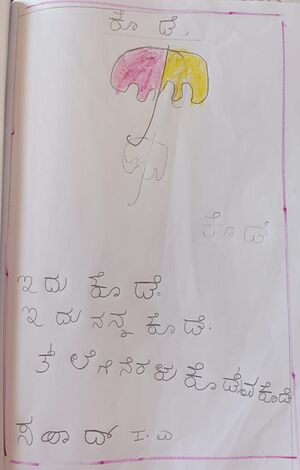 ಕೊಡೆ.
ಕೊಡೆ
ಇದು ಕೊಡೆ.
ಇದು ನನ್ನ ಕೊಡೆ.
ತಲೆಗೆ ನೆರಳು ಕೊಡುವ ಕೊಡೆ